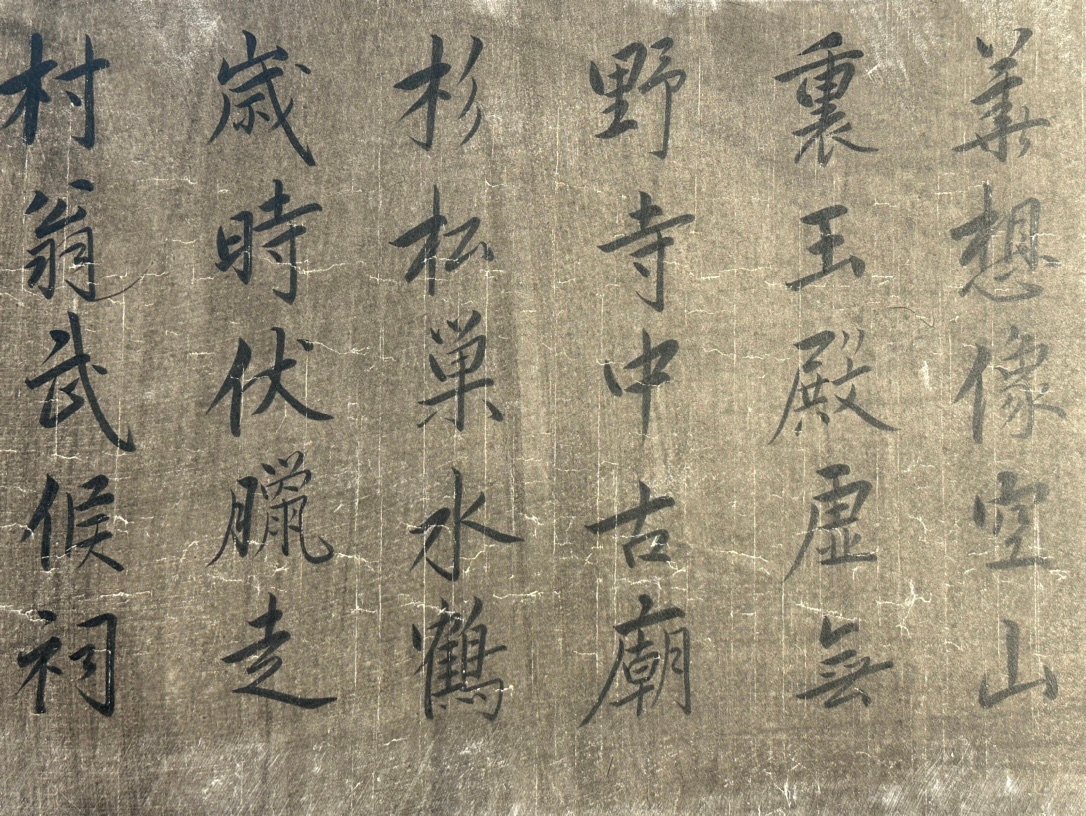 華想像空山
裏玉殿虚無
野寺中古廟
杉松巢水鶴
歲時伏臘走
村翁武侯祠